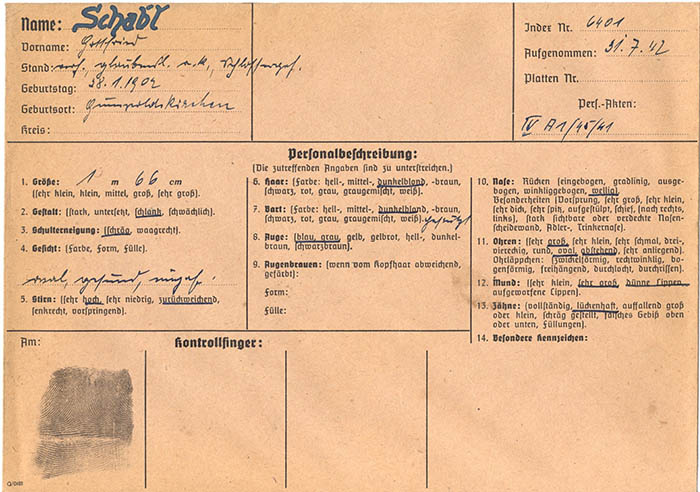 Name: Schabl
Vorname: Gottfried
Stand: verh., glaubensl. a. k., Schlosserges.
Geburtstag: 28.1.1902
Geburtsort: Gumpoldskirchen
Kreis:
Index Nr. 6401
Aufgenommen: 31.7.42
Platten Nr.
Pers.-Akten:
IV A1/45/41
Personalbeschreibung:
(Die zutreffenden Angaben sind zu unterstreichen.)
1. Größe: 1 m 66 cm
(sehr klein, klein, mittel, groß, sehr groß).
2. Gestalt: (stark, untersetzt, schlank, schwächlich).
3. Schulterneigung: (schräg, waagrecht).
4. Gesicht: (Farbe, Form, Fülle).
oval, gesund,
5. Stirn: (sehr hoch, sehr niedrig, zurückweichend,
senkrecht, vorspringend).
6. Haar: (Farbe: hell-, mittel-, dunkelblond, -braun,
schwarz, rot, grau, graugemischt, weiß).
7. Bart: (Farbe: hell-, mittel-, dunkelblond, -braun,
schwarz, rot, grau, graugemischt, weiß) gestutzt
8. Auge: (blau, grau, gelb, gelbrot, hell-, dunkel-
braun, schwarzbraun).
9. Augenbrauen: (wenn vom Kopfhaar abweichend,
gefärbt):
Form:
Fülle:
10. Nase: Rücken (eingebogen, gradlinig, ausge-
bogen, winkliggebogen, wellig).
Besonderheiten (Vorsprung, sehr groß, sehr klein,
sehr dick, sehr spitz, aufgestülpt, schief, nach rechts,
links) (stark sichtbare oder verdeckte Nasen-
scheidewand, Adler-, Trinkernase).
11. Ohren: (sehr groß, sehr klein, sehr schmal, drei-,
viereckig, rund, oval, abstehend, sehr anliegend).
Ohrläppchen: (zwickelförmig, rechtwinklig, bo-
genförmig, freihängend, durchlocht, durchrissen).
12. Mund: (sehr klein, sehr groß, dünne Lippen,
aufgeworfene Lippen).
13. Zähne: (vollständig, lückenhaft, auffallend groß
oder klein, schräg gestellt, falsches Gebiß oben
oder unten, Füllungen).
14. Besondere Kennzeichen:
Am:
Kontrollfinger: